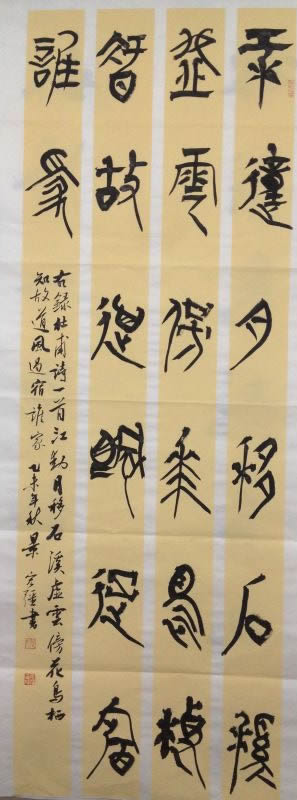 江動月移石溪
虛雲傍花鳥棲
智故道颿過宿
誰家
右錄杜甫詩一首江動月移石溪虛雲傍花鳥栖
知故道風過宿誰家 乙未年秋景書